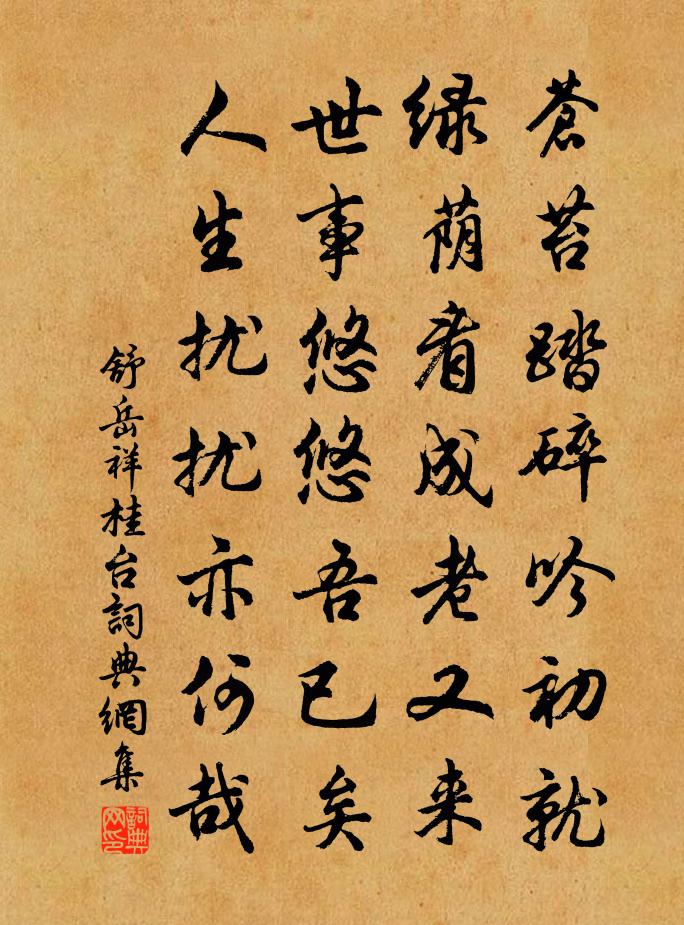 蒼苔踏碎吟初就
緑荫看成老又来
世事悠悠吾已矣
人生扰扰亦何哉
舒岳祥桂台詞典網集
詞典网印